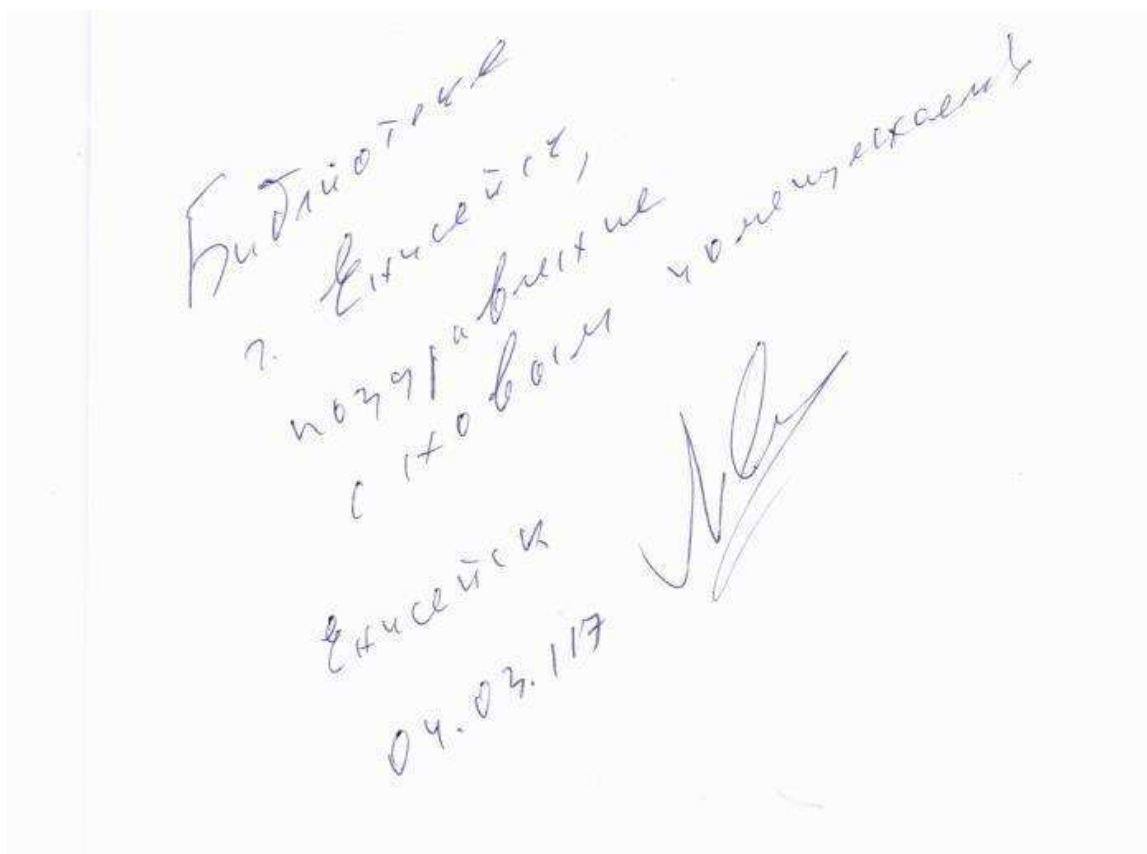 Библиотеке
г. Енисейск,
поздравление
с новым помещением
Енисейск
04.03.117